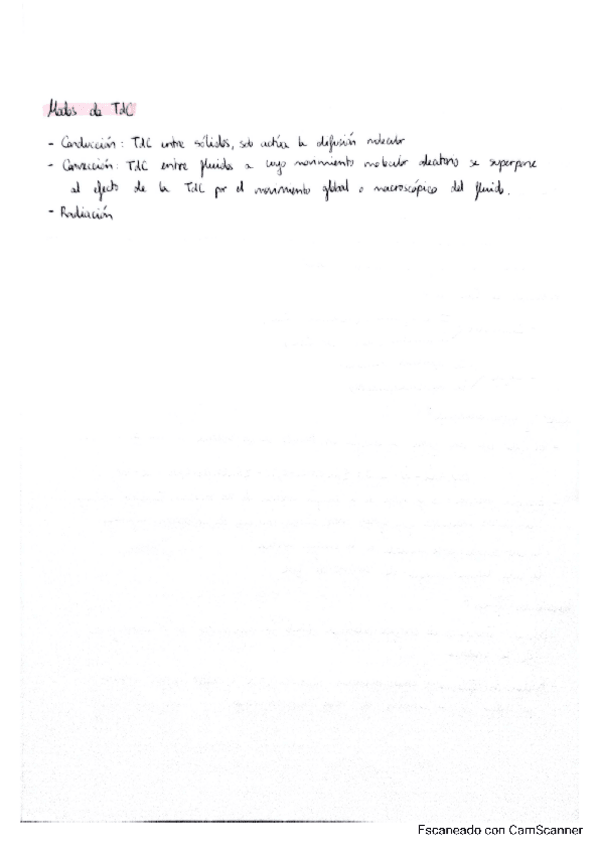 Modos de TdC
- Conducción: TdC entre sólidos, solo actúa la difusión molecular
- Convección: TdC entre fluidos a cuyo movimiento molecular aleatorio se superpone
al efecto de la TdC por el movimiento global o macroscópico del fluido.
- Radiación
Escaneado con CamScanner